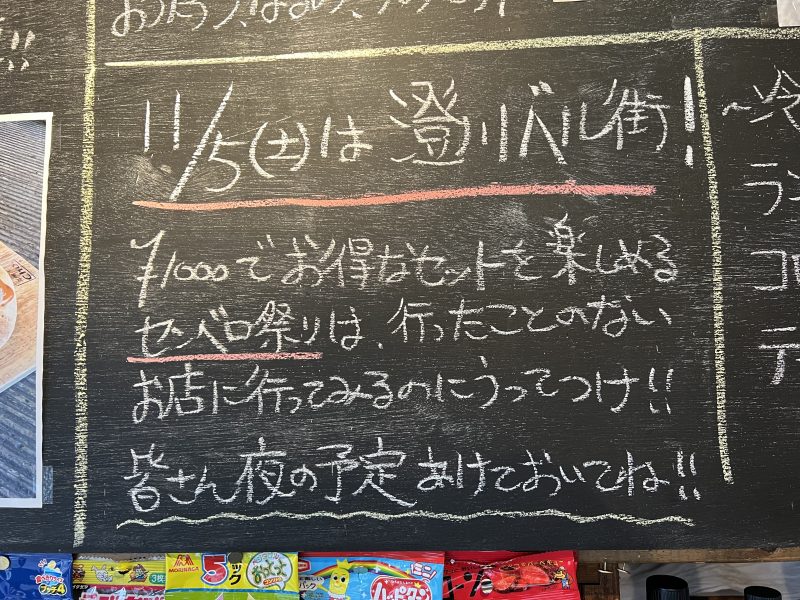 11/5(土)は澄川バル街!
¥1000でお得なセットを楽しめる
センベロ祭りは、行ったことのない
お店に行ってみるのにうってつけ!!
皆さん夜の予定あけておいてね!!
MORINAGA
5パック
ハッピーターン
ミニ